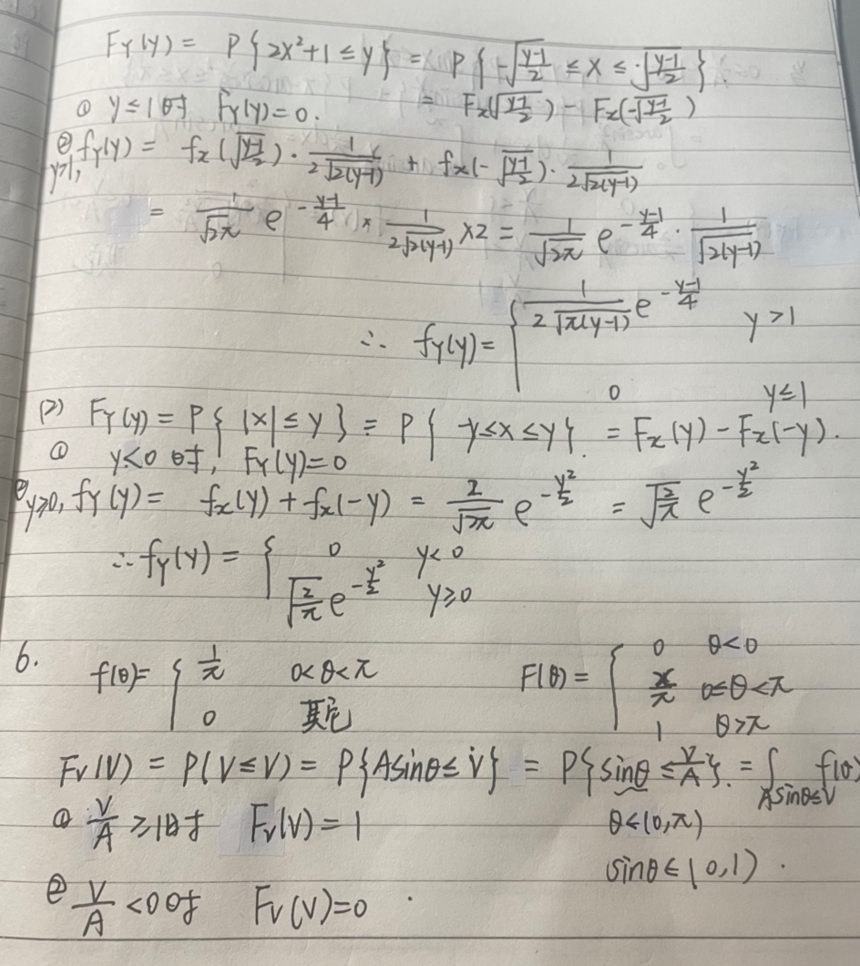 F_Y(y) = P{2X²+1≤y} = P{-√((y-1)/2) ≤ X ≤ √((y-1)/2)}
= F_X(√((y-1)/2)) - F_X(-√((y-1)/2))
① y≤1时 F_Y(y)=0.
② y>1, f_Y(y) = f_X(√((y-1)/2))·1/(2√(2(y-1))) + f_X(-√((y-1)/2))·1/(2√(2(y-1)))
= 1/√(2π) e^(-(y-1)/4) × 1/(2√(2(y-1))) ×2 = 1/√(2π) e^(-(y-1)/4) · 1/√(2(y-1))
∴ f_Y(y) = { 1/(2√(π(y-1))) e^(-(y-1)/4) y>1
0 y≤1
(2) F_Y(y) = P{|X|≤y} = P{-y≤X≤y} = F_X(y) - F_X(-y).
① y<0时, F_Y(y)=0
② y≥0, f_Y(y) = f_X(y) + f_X(-y) = 2/√(2π) e^(-y²/2) = √(2/π) e^(-y²/2)
∴ f_Y(y) = { 0 y<0
√(2/π) e^(-y²/2) y≥0
6. f(θ) = { 1/π 0<θ<π
0 其它
F(θ) = { 0 θ<0
x/π 0≤θ<π
1 θ>π
F_V(V) = P(V≤V) = P{Asinθ≤V} = P{sinθ≤V/A} = ∫_(Asinθ≤V) f(θ)
① V/A ≥1时 F_V(V)=1
θ∈(0,π)
sinθ∈(0,1).
② V/A <0时 F_V(V)=0.